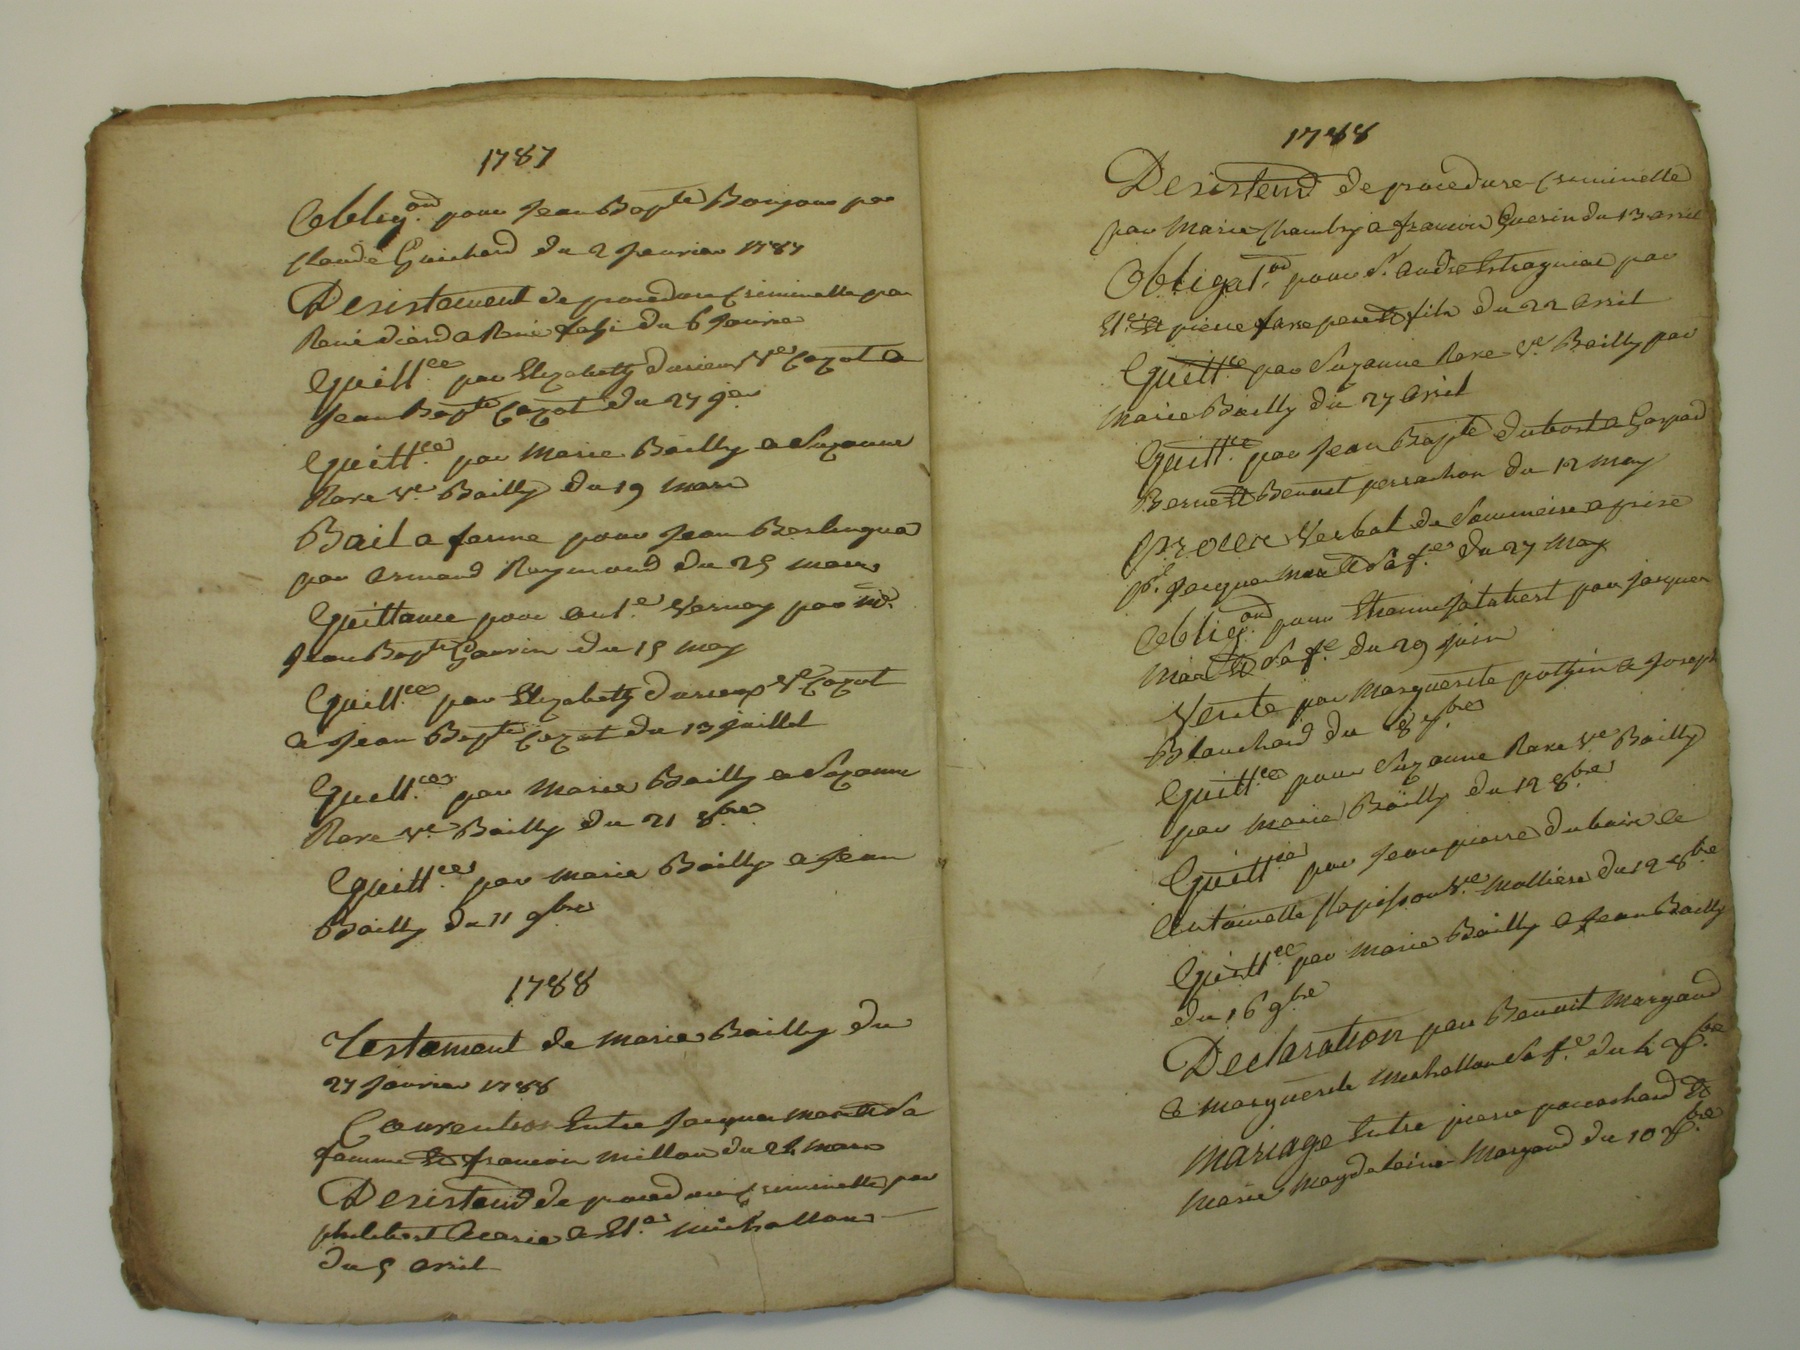 1787
Oblig.on pour Jean Bapte Bonjour par
Claude Guichard du 2 Janvier 1787
Desistement de procedure Criminelle par
René à René du 6 Janvier
Quitt.ce par Elizabeth Durieux Ve Cozot a
Jean Bapte Cozot du 27
Quitt.ce par Marie Bailly a Suzanne
Rave Ve Bailly du 19 Mars
Bail a ferme pour Jean Berlingua
par Armand Raymond du 25 mars
Quittance pour ant.e Vernay par
Jean Bapte Gaurin du 15 may
Quitt.ce par Elizabeth Durieux Ve Cozot
a Jean Bapte Cozot du 13 juillet
Quitt.ce par Marie Bailly a Suzanne
Rave Ve Bailly du 21 8bre
Quitt.ce par Marie Bailly a Jean
Bailly du 11 9bre
1788
Testament de Marie Bailly du
27 Janvier 1788
Convention Entre Jacques Marc Et Sa
femme Et francois Millon du mars
Desistemt de procedure Criminelle par
philibert a Et.e Michallon
du 5 avril
1788
Desistemt de procedure Criminelle
par Marie Chambry a francois Guerin du 13 avril
Obligat.on pour S.r andré par
Et pierre favre pere Et fils du 22 avril
Quitt.ce par Suzanne Rave Ve Bailly par
Marie Bailly du 27 avril
Quitt.ce par Jean Bapte Dubost a Gaspard
Berne Et Benoit perrachon du 12 may
procex Verbal de Sommaire aprise
pr. Jacques Marc Et Sa f.e du 27 May
Oblig.on pour Etienne Jalabert par Jacques
Marc Et Sa f.e du 29 Juin
Vente par Marguerite pothin a Joseph
Blanchard du 8 7bre
Quitt.ce pour Suzanne Rave Ve Bailly
par Marie Bailly du 12 8bre
Quitt.ce par Jean pierre Dubois a
antoinette Clapisson Ve Molliere du 12 8bre
Quitt.ce par Marie Bailly a Jean Bailly
du 16 9bre
Declaration par Benoit Margand
a Marguerite Michallon Sa f.e du 4 Xbre
Mariage Entre pierre Et
Marie Magdelaine Margand du 10 Xbre